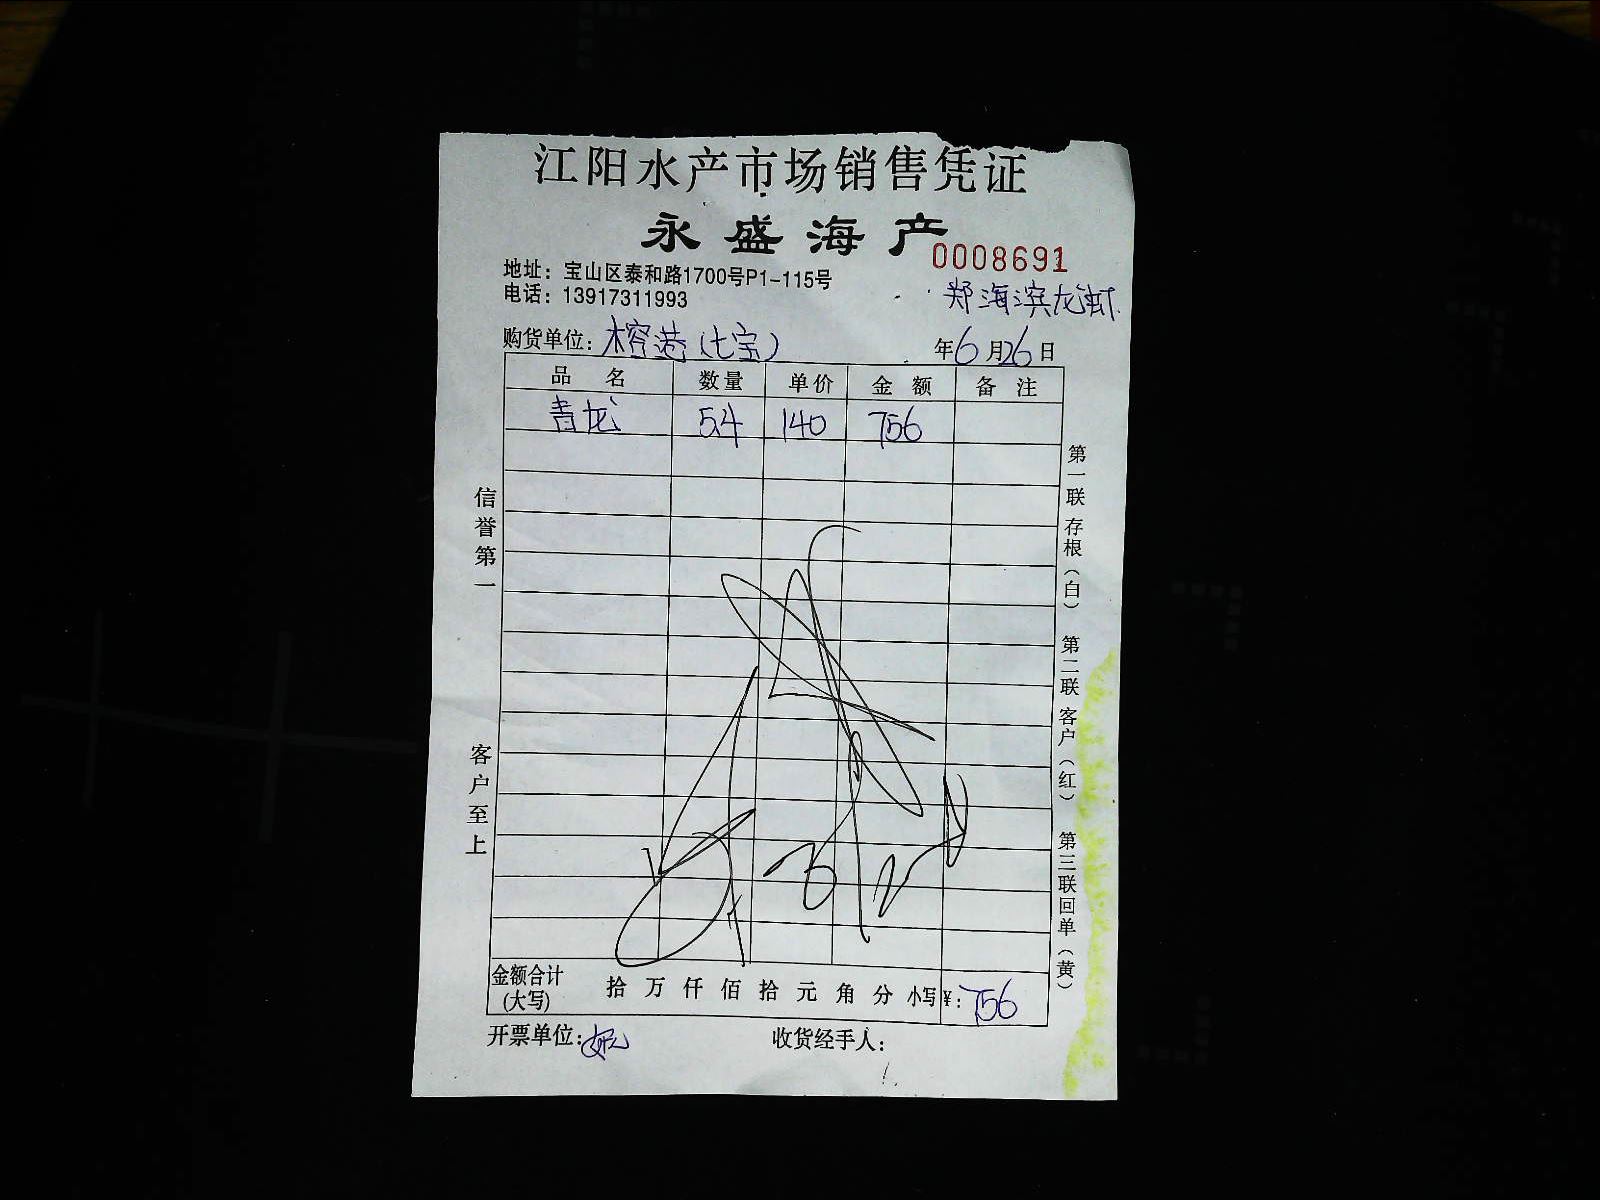 江阳水产市场销售凭证
永盛海产
0008691
地址：宝山区泰和路1700号P1-115号
电话：13917311993
郑海滨龙虾
购货单位：榕港（七宝） 年6月26日
品名 数量 单价 金额 备注
青龙 5.4 140 756
信誉第一
客户至上
第一联 存根（白） 第二联 客户（红） 第三联 回单（黄）
金额合计（大写） 拾 万 仟 佰 拾 元 角 分 小写¥：756
开票单位： 收货经手人：